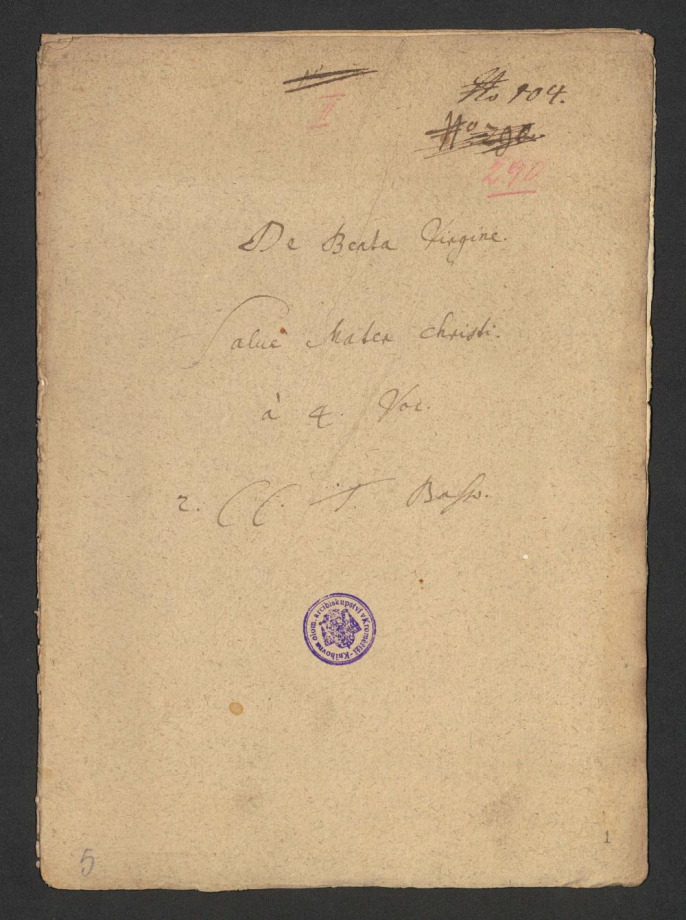 No 104.
II
290
De Beata Virgine.
Salue Mater christi.
à 4. Voc.
2. CC. T. Basso.
Knihovna olom. Arcibiskupství v Kroměříži
5
1